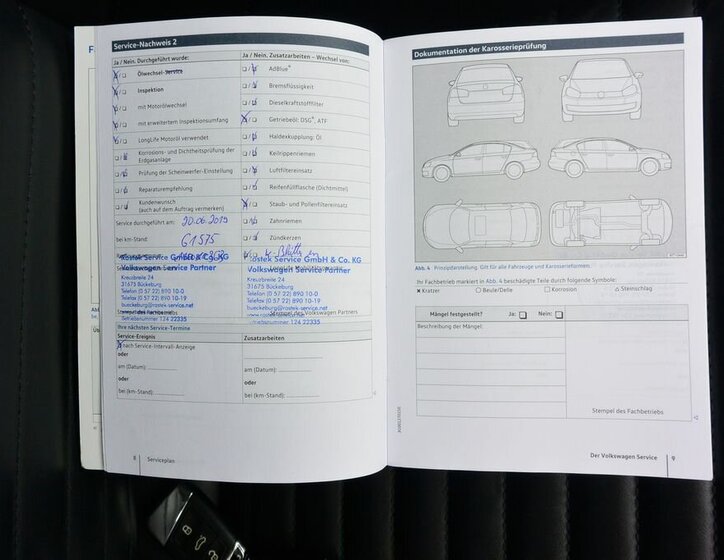 Service-Nachweis 2
Ja / Nein, Durchgeführt wurde:
Ölwechsel-Service
Inspektion
mit Motorölwechsel
mit erweitertem Inspektionsumfang
LongLife Motoröl verwendet
Korrosions- und Dichtheitsprüfung der
Erdgasanlage
Prüfung der Scheinwerfer-Einstellung
Reparaturempfehlung
Kundenwunsch
(auch auf dem Auftrag vermerken)
Service durchgeführt am: 20.06.2019
bei km-Stand: 61575
Ja / Nein, Zusatzarbeiten – Wechsel von:
AdBlue®
Bremsflüssigkeit
Dieselkraftstofffilter
Getriebeöl: DSG®, ATF
Haldexkupplung: Öl
Keilrippenriemen
Luftfiltereinsatz
Reifenfüllflasche (Dichtmittel)
Staub- und Pollenfiltereinsatz
Zahnriemen
Zündkerzen
Rostek Service GmbH & Co. KG
Volkswagen Service Partner
Kreuzbreite 24
31675 Bückeburg
Telefon (0 57 22) 890 10-0
Telefax (0 57 22) 890 10-19
bueckeburg@rostek-service.net
Betriebsnummer 124 22335
Rostek Service GmbH & Co. KG
Volkswagen Service Partner
Kreuzbreite 24
31675 Bückeburg
Telefon (0 57 22) 890 10-0
Telefax (0 57 22) 890 10-19
bueckeburg@rostek-service.net
Stempel des Volkswagen Partners
Betriebsnummer 124 22335
Ihre nächsten Service-Termine
Service-Ereignis
nach Service-Intervall-Anzeige
oder
am (Datum):
oder
bei (km-Stand):
Zusatzarbeiten
am (Datum):
oder
bei (km-Stand):
8 Serviceplan
Dokumentation der Karosserieprüfung
Abb. 4 Prinzipdarstellung. Gilt für alle Fahrzeuge und Karosserieformen.
Ihr Fachbetrieb markiert in Abb. 4 beschädigte Teile durch folgende Symbole:
× Kratzer ○ Beule/Delle □ Korrosion △ Steinschlag
Mängel festgestellt? Ja: Nein:
Beschreibung der Mängel:
Stempel des Fachbetriebs
Der Volkswagen Service 9